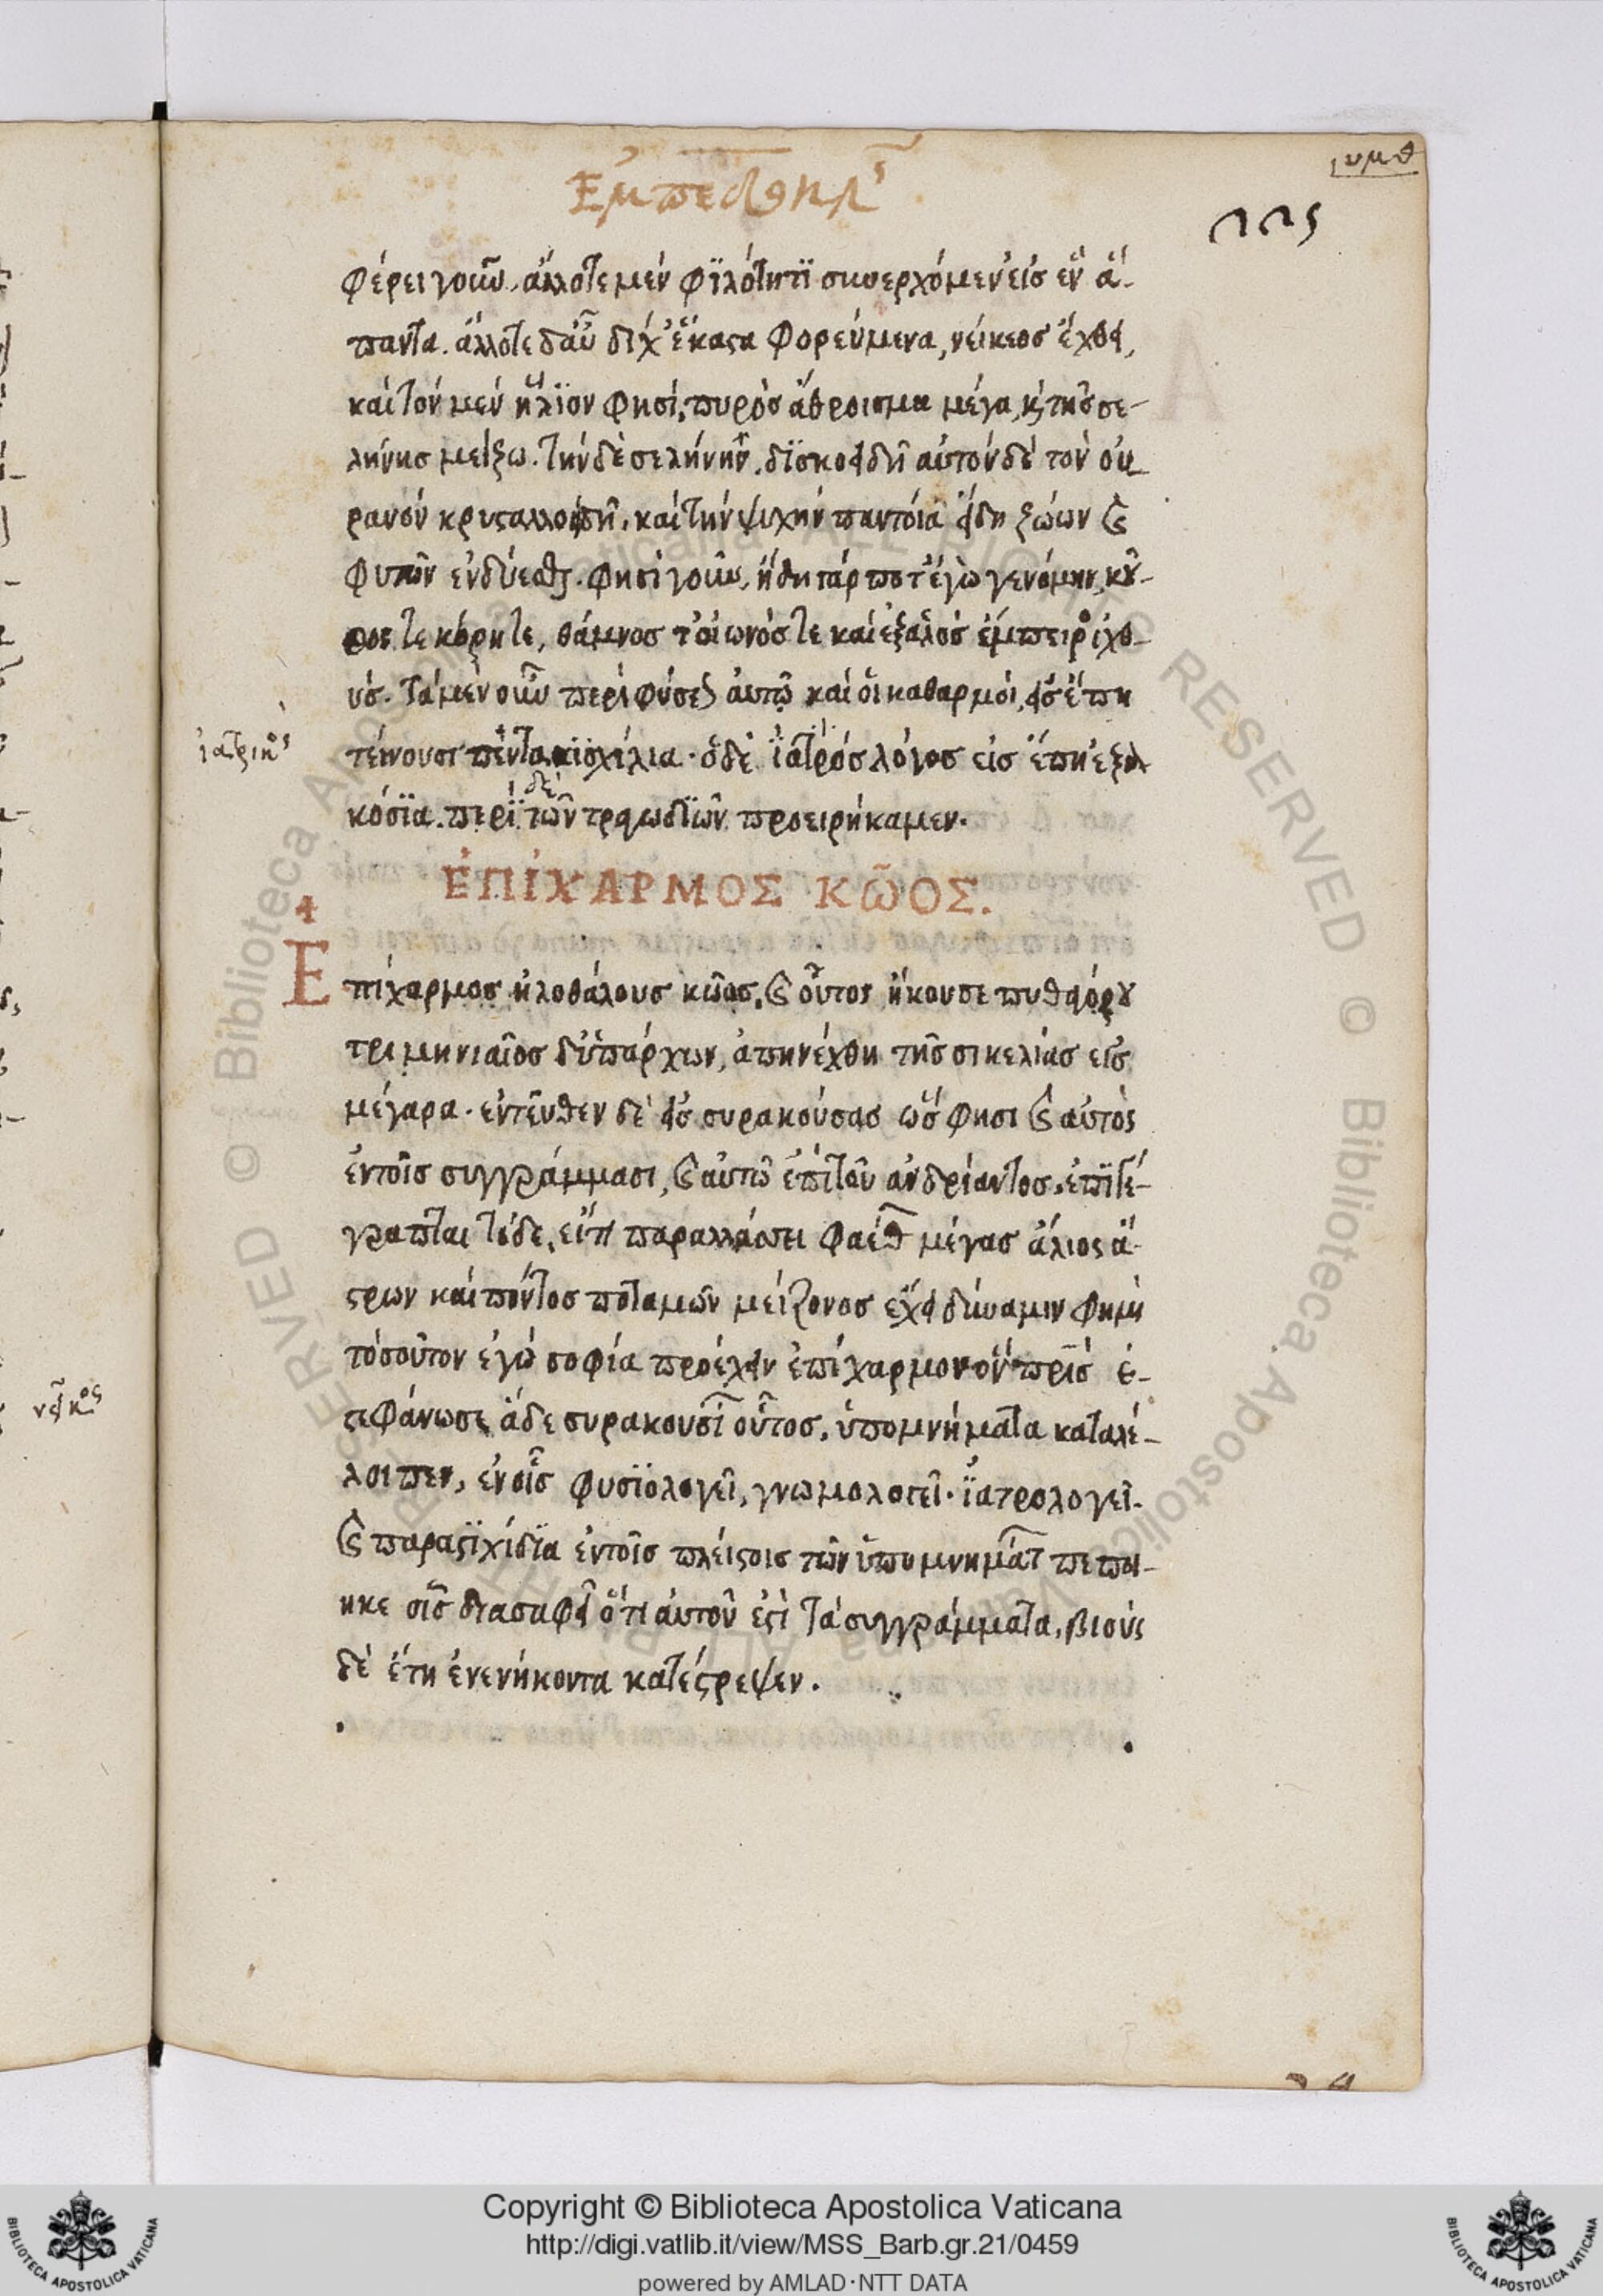 Ἐμπεδοκλ
υμθ
φέρει γοῦν, ἄλλοτε μὲν φϊλότητϊ συνερχόμεν' εἰς ἓν ἅ-
παντα. ἄλλοτε δ' αὖ δίχ' ἕκαστα φορεύμενα, νείκεος ἔχθει,
καὶ τὸν μὲν ἥλϊον φησί, πυρὸς ἄθροισμα μέγα, κ̀ τῆς σε-
λήνης μείζω. τὴν δὲ σελήνην, δϊσκοειδῆ αὐτὸν δὲ τὸν οὐ
ρανὸν κρυσταλλοειδῆ, καὶ τὴν ψυχὴν παντοία εἴδη ζώων ϗ
φυτῶν ἐνδύεσθαι. φησὶ γοῦν, ἤδη γάρ ποτ' ἐγὼ γενόμην κοῦ-
ρος τε κόρη τε, θάμνος τ' οἰωνός τε καὶ ἐξ ἁλὸς ἔμπειρος ἰχθ-
ύς. τὰ μὲν οὖν περὶ φύσεως αὐτῶ καὶ οἱ καθαρμοί, εἰς ἔπη
ἰατρικὸς
τείνουσι πεντακϊσχίλια. ὁ δὲ ἰατρός λόγος εἰς ἔπη ἑξα
δὲ
κόσϊα. περὶ τῶν τραγωδϊῶν προειρήκαμεν.
ἘΠΊΧΑΡΜΟΣ ΚΩ͂ΟΣ.
Επίχαρμος ἠλοθάλους κῶος, ϗ οὗτος ἤκουσε πυθαγόρου
τριμηνιαῖος δ' ὑπάρχων, ἀπηνέχθη τῆς σικελίας εἰς
μέγαρα. ἐντεῦθεν δὲ εἰς συρακούσας ὥς φησι ϗ αὐτὸς
ἐν τοῖς συγγράμμασι, ϗ αὐτῶ ἐπὶ τοῦ ἀνδριάντος, ἐπϊγέ-
γραπται τόδε, εἴ τι παραλλάσσει φαέθ μέγας ἅλιος ἄ-
στρων καὶ πόντος ποταμῶν μείζονος ἔχει δύναμιν φημὶ
τόσουτον ἐγὼ σοφία προέχειν ἐπίχαρμον ὃν πρὶς ἐ-
στεφάνωσε ἅδε συρακουσί οὗτος, ὑπομνήματα καταλέ-
λοιπεν, ἐν οἷς φυσϊολογεῖ, γνωμολογεῖ. ἰατρολογεῖ.
ϗ παραστϊχίδϊα ἐν τοῖς πλείστοις τῶν ὑπομνημάτ πεποι-
ηκε οἷς διασαφεῖ ὅτι αὐτοῦ ἐστὶ τὰ συγγράμματα, βιοὺς
δὲ ἔτη ἐνενήκοντα κατέστρεψεν.
Copyright © Biblioteca Apostolica Vaticana
http://digi.vatlib.it/view/MSS_Barb.gr.21/0459
powered by AMLAD·NTT DATA
BIBLIOTECA APOSTOLICA VATICANA
BIBLIOTECA APOSTOLICA VATICANA